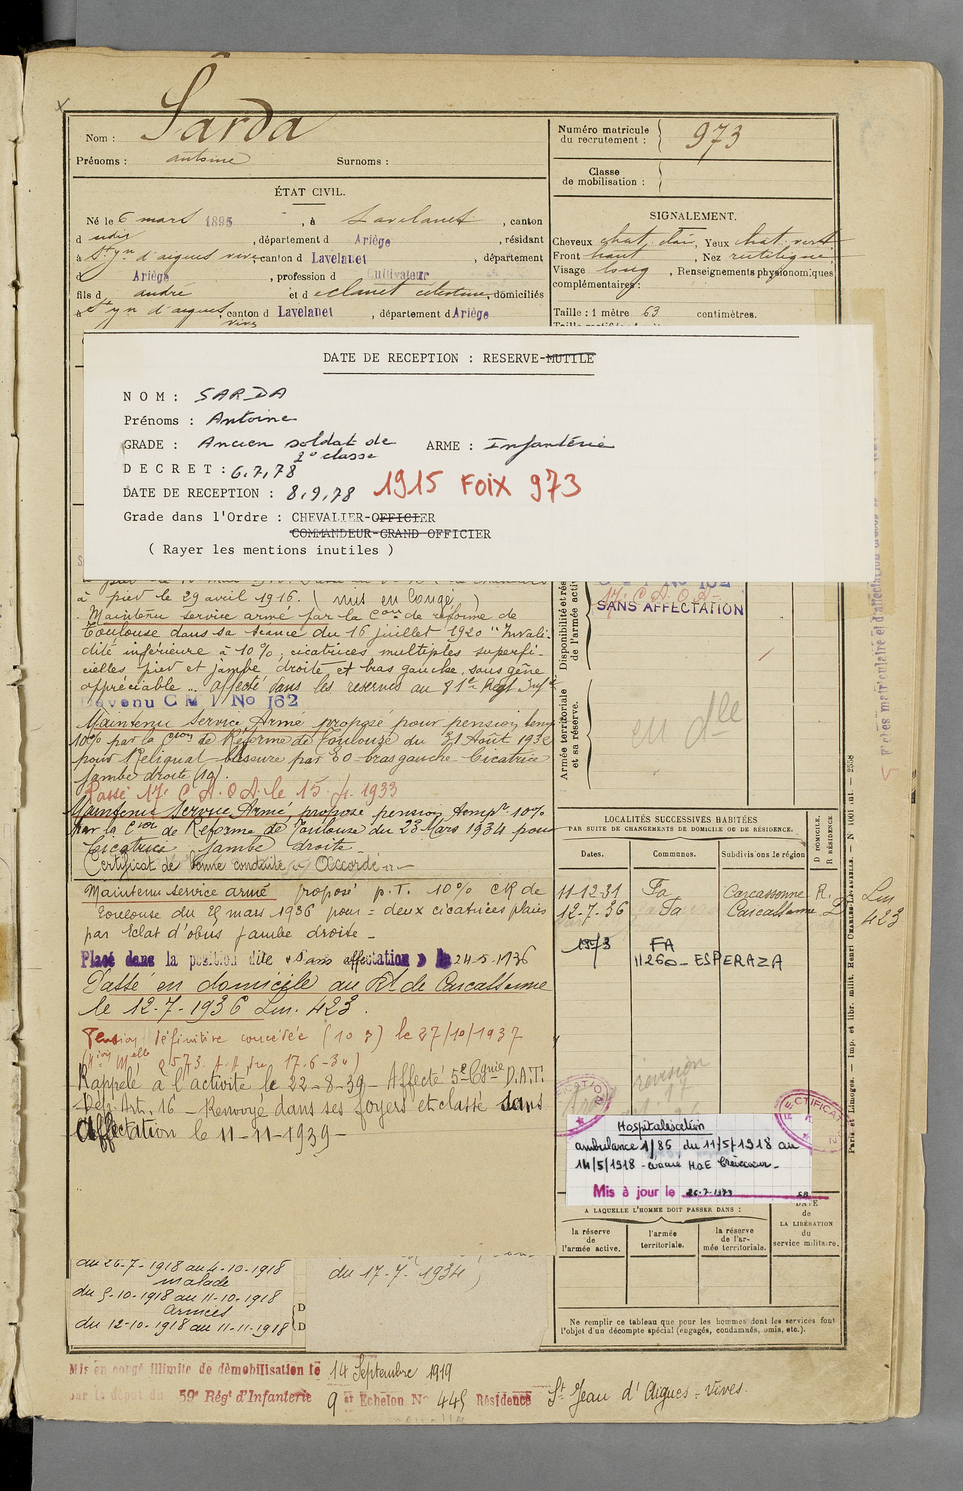 Sarda
Nom :
Prénoms : antoine Surnoms :
Numéro matricule
du recrutement : 973
Classe
de mobilisation :
ÉTAT CIVIL.
Né le 6 mars 1895, à Lavelanet, canton
d udit, département d Ariège, résidant
à St Jn d'aigues vives canton d Lavelanet, département
d Ariège, profession d Cultivateur
fils d andré et d eclanet célestine, domiciliés
à St Jn d'aigues vives canton d Lavelanet, département d Ariège
SIGNALEMENT.
Cheveux chat. clair, Yeux chat. vert
Front haut, Nez rectiligne
Visage long, Renseignements physionomiques
complémentaires :
Taille : 1 mètre 63 centimètres.
DATE DE RECEPTION : RESERVE-MUTILE
NOM : SARDA
Prénoms : Antoine
GRADE : Ancien soldat de 2° classe ARME : Infanterie
DECRET : 6.7.78
DATE DE RECEPTION : 8.9.78 1915 FOIX 973
Grade dans l'Ordre : CHEVALIER-OFFICIER
COMMANDEUR-GRAND OFFICIER
( Rayer les mentions inutiles )
à pied le 29 avril 1916. (mis en Congé)
Maintenu service armé par la Con de réforme de
Toulouse dans sa séance du 16 juillet 1920 "Invali-
dité inférieure à 10%, cicatrices multiples superfi-
cielles pied et jambe droite et bras gauche, sans gêne
appréciable... affecté dans les réserves au 81e Régt Infie
Devenu C M I No 162
Maintenu Service Armé proposé pour pension temp
10% par la Cion de Réforme de Toulouse du 31 Août 1932
pour Reliquat blessure par EO bras gauche Cicatrice
jambe droite
Passé 17e C.A.O.A. le 15.4.1933
Maintenu Service Armé, propose pension tempre 10%
par la Cion de Réforme de Toulouse du 23 Mars 1934 pour
Cicatrice jambe droite
Certificat de bonne conduite Accordé
Maintenu service armé proposé p.T. 10% CR de
Toulouse du 25 mars 1936 pour = deux cicatrices plaies
par Eclat d'obus jambe droite _
Placé dans la position dite "Sans affectation" le 24-5-1936
Passé en domicile au Rt de Carcassonne
le 12-7-1936 Lm. 423.
Pension définitive concédée (10%) le 27/10/1937
Rappelé à l'activité le 22-8-39 - Affecté 5e Cgnie D.A.T.
Dép. Art. 16 - Renvoyé dans ses foyers et classé sans
affectation le 11-11-1939 -
C M I No 162
17e C.A.O.A
SANS AFFECTATION
Disponibilité et rés
de l'armée activ
Armée territoriale
et sa réserve.
en dle
LOCALITÉS SUCCESSIVES HABITÉES
PAR SUITE DE CHANGEMENTS DE DOMICILE OU DE RÉSIDENCE.
Dates. Communes. Subdivisions de région D DOMICILE. R RÉSIDENCE
11-12-31 Fa Carcassonne R.
12-7-36 Fa Carcassonne D
Lm
423
1973 FA
11260_ ESPERAZA
révision
Hospitalisation
ambulance 1/85 du 11/5/1918 au
14/5/1918 - évacué HOE Crèvecoeur -
Mis à jour le 26-7-1973
RECTIFICATION
A LAQUELLE L'HOMME DOIT PASSER DANS :
la réserve
de
l'armée active.
l'armée
territoriale.
la réserve
de l'ar-
mée territoriale.
DATE
de
LA LIBÉRATION
du
service militaire.
Ne remplir ce tableau que pour les hommes dont les services font
l'objet d'un décompte spécial (engagés, condamnés, omis, etc.).
du 26-7-1918 au 4-10-1918
malade
du 5-10-1918 au 11-10-1918
Armées
du 12-10-1918 au 11-11-1918
D
D
du 17-7-1934
Mis en congé illimité de démobilisation le 14 Septembre 1919
par le dépôt du 59e Régt d'Infanterie 9 er Echelon No 445 Résidence St Jean d'Aigues-Vives.
Paris et Limoges. — Imp. et libr. milit. Henri CHARLES-LAVAUZELLE.